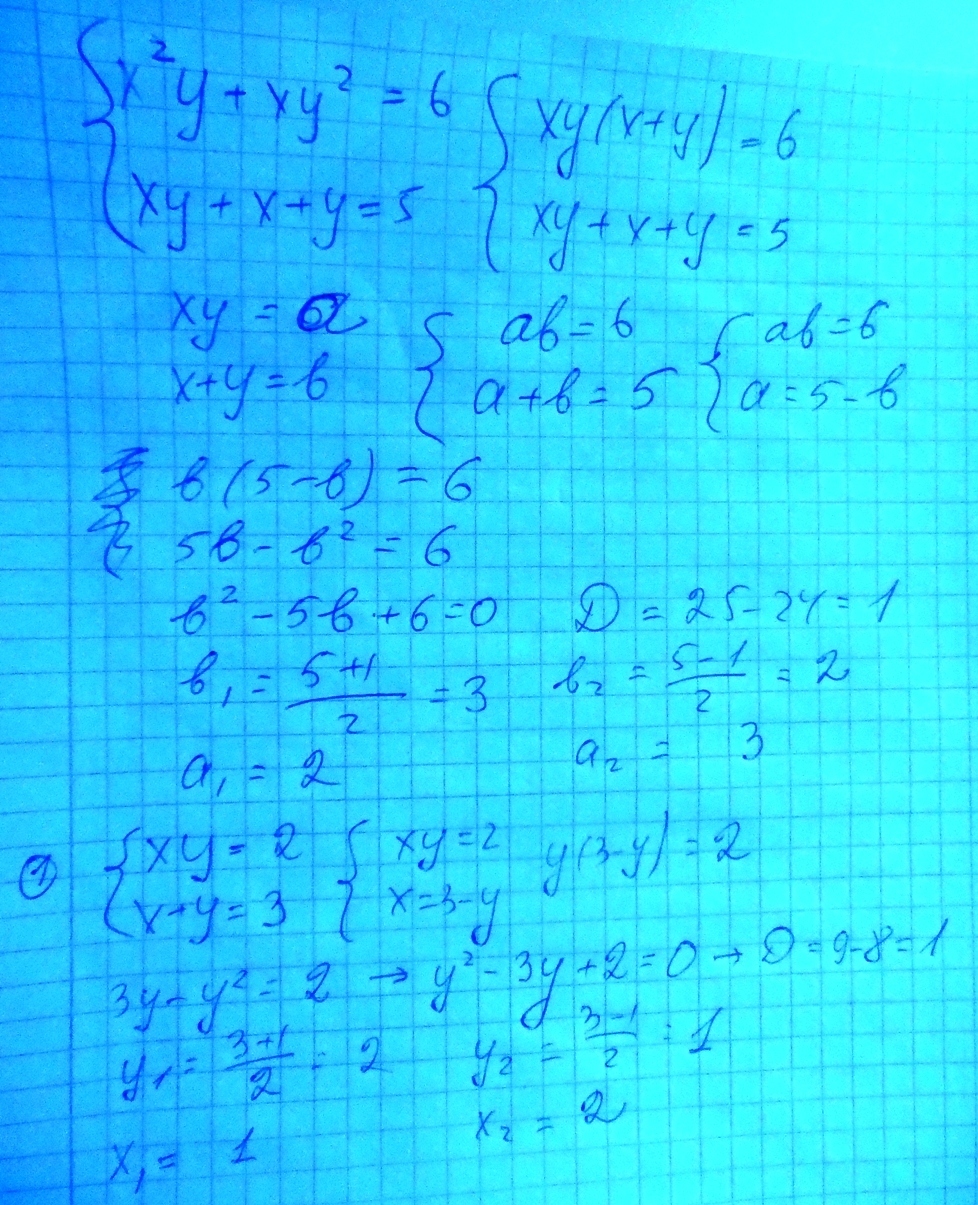 { x²y + xy² = 6 { xy(x+y) = 6
xy + x + y = 5 xy + x + y = 5
xy = a { ab = 6 { ab = 6
x+y = b a + b = 5 a = 5 - b
b(5-b) = 6
5b - b² = 6
b² - 5b + 6 = 0 D = 25 - 24 = 1
b₁ = (5+1)/2 = 3 b₂ = (5-1)/2 = 2
a₁ = 2 a₂ = 3
① { xy = 2 { xy = 2 y(3-y) = 2
x+y = 3 x = 3-y
3y - y² = 2 → y² - 3y + 2 = 0 → D = 9-8 = 1
y₁ = (3+1)/2 = 2 y₂ = (3-1)/2 = 1
x₁ = 1 x₂ = 2